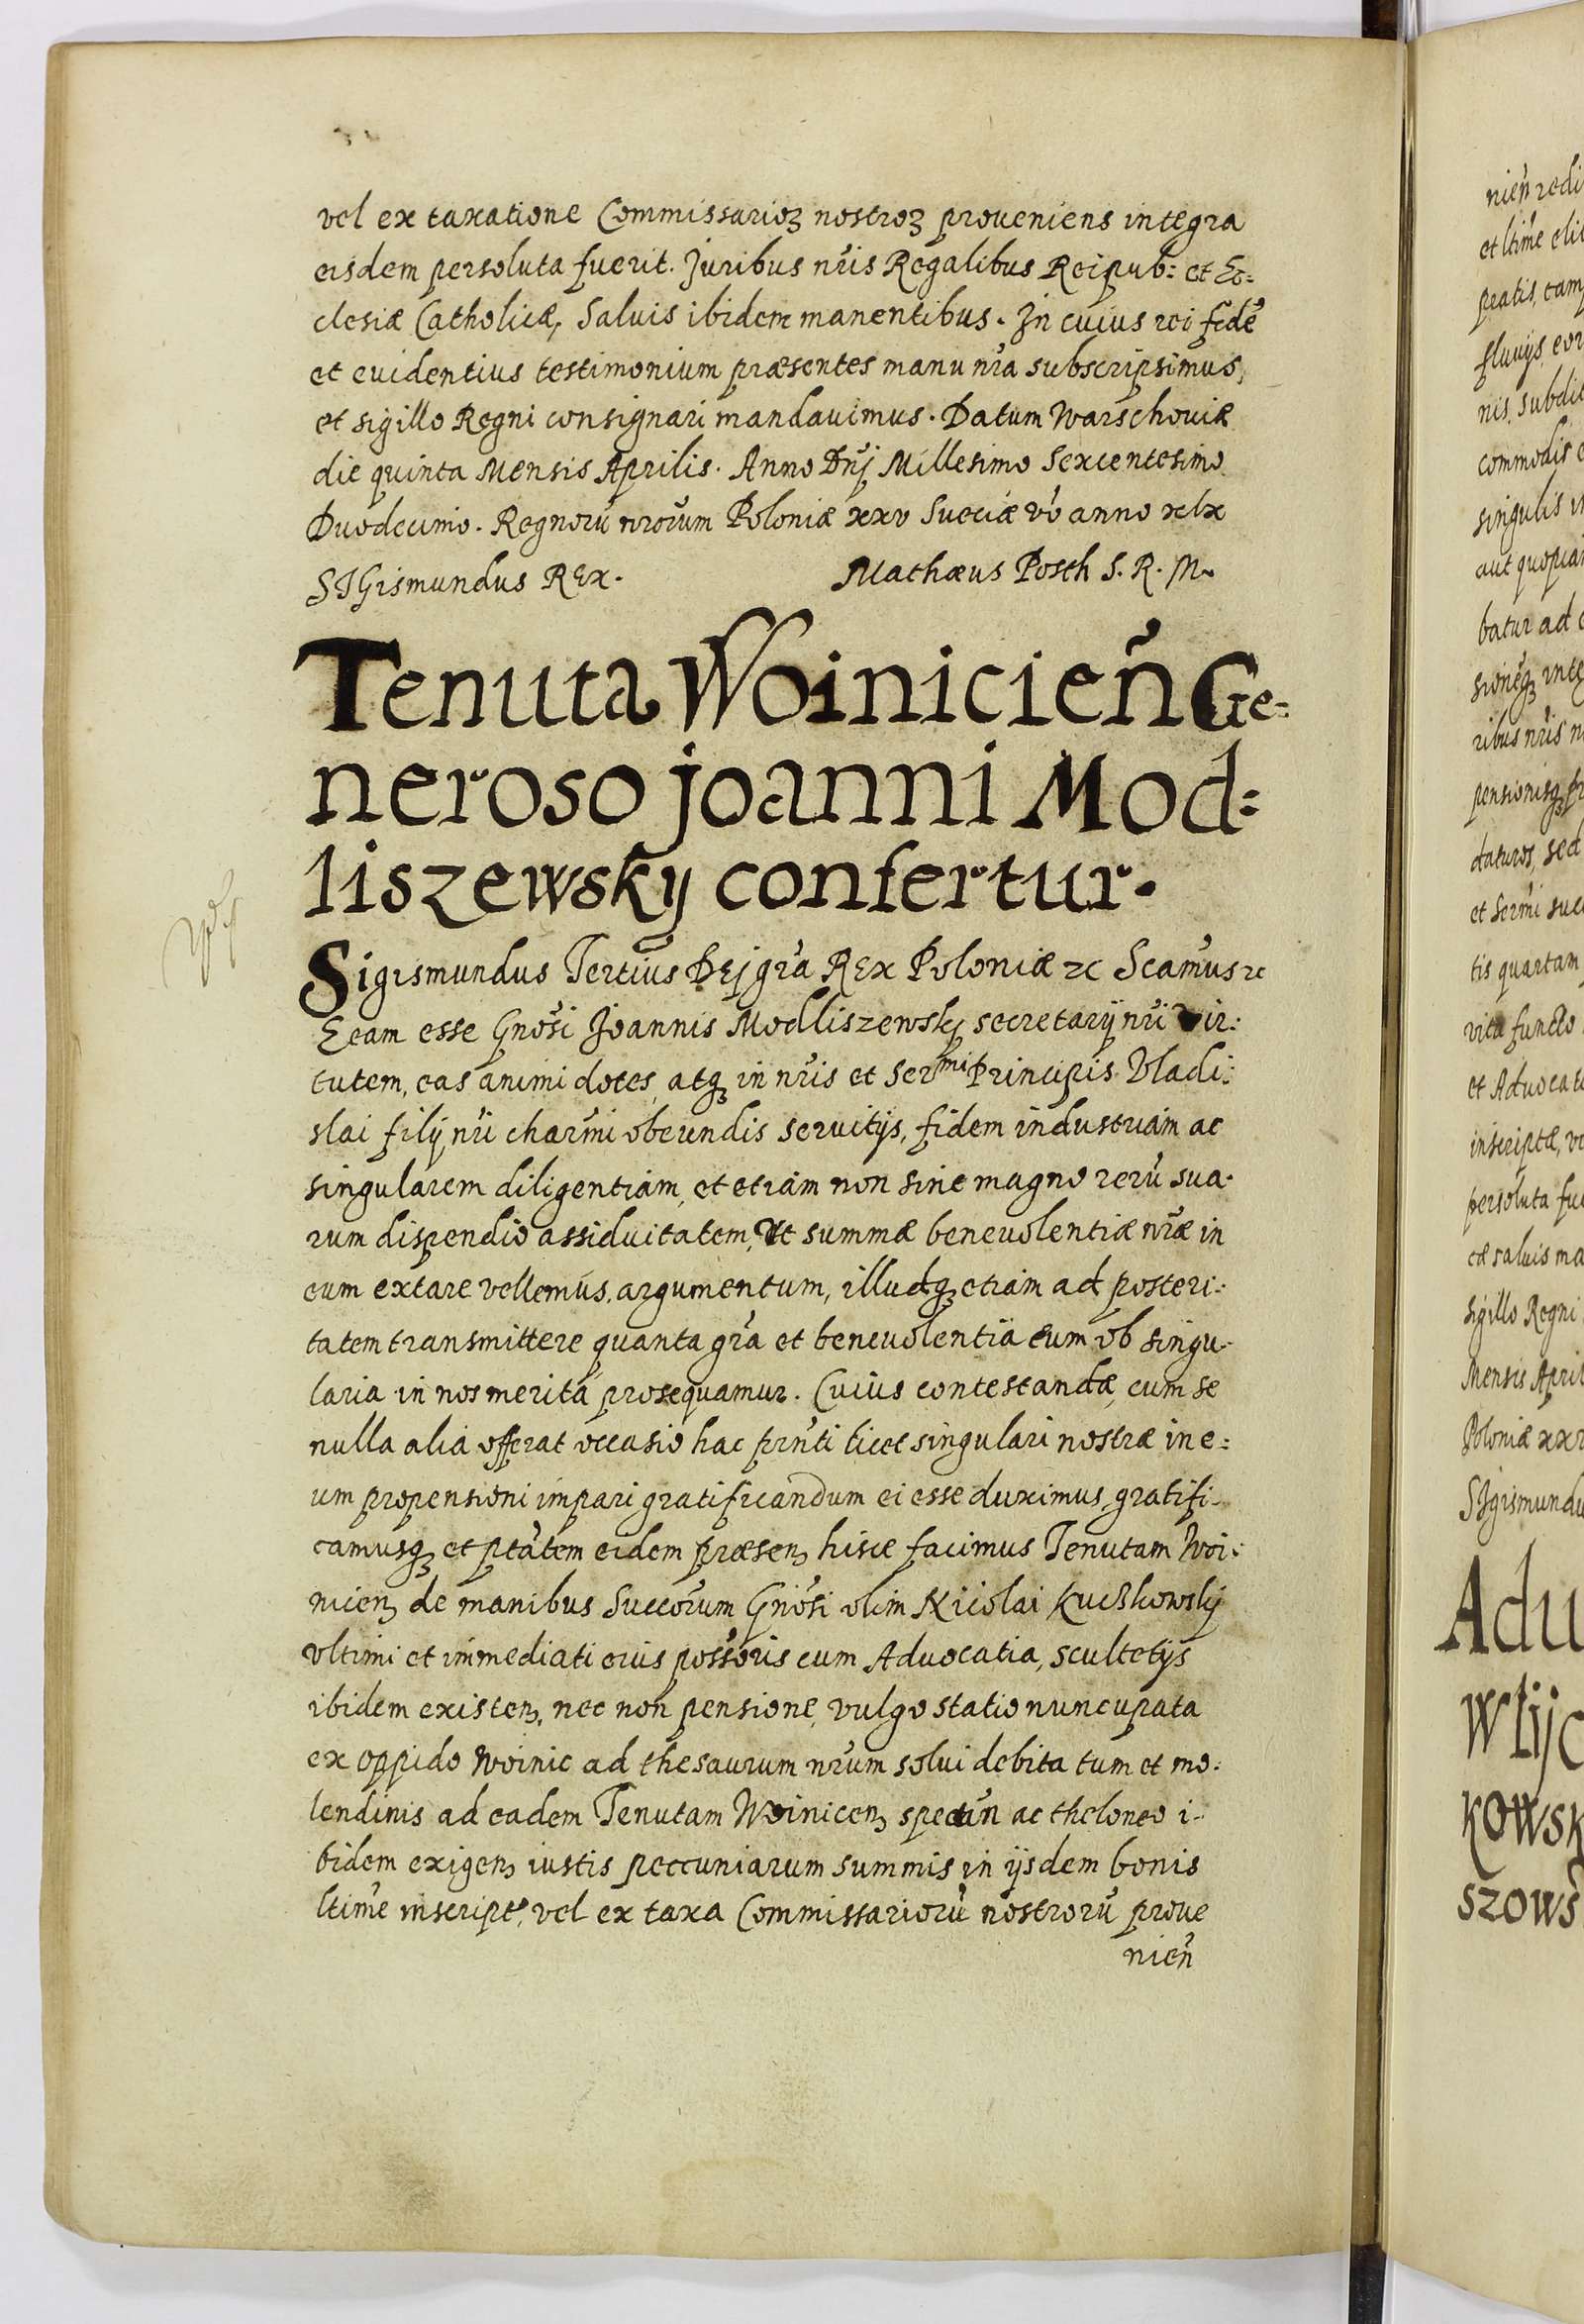 vel ex taxatione Commissarioꝝ nostroꝝ proueniens integra
eisdem persoluta fuerit. Juribus nr̃is Regalibus Reipub: et Ec=
clesiæ Catholicæ, Saluis ibidem manentibus. In cuius rei fidẽ
et euidentius testimonium præsentes manu nr̃a subscripsimus,
et sigillo Regni consignari mandauimus. Datum Warschouiæ
die quinta Mensis Aprilis. Anno Dñj Millesimo Sexcentesimo
Duodecimo. Regnorũ nr̃orum Poloniæ xxv Sueciæ vo anno xlx
SIGismundus REx. Mathæus Posth S. R. M.
Tenuta Woiniciẽn Ge=
neroso joanni Mod=
liszewsky confertur.
Sigismundus Tertius Dej gr̃a REx Poloniæ ꝛc Scamus ꝛc
Eeam esse Gnosi Joannis Modliszewskj secretarij nr̃i vir:
tutem, eas animi dotes, atqꝫ in nr̃is et Sermi Principis Vladi:
slai filij nr̃i charmi obeundis seruitijs, fidem industriam ac
singularem diligentiam, et etiam non sine magno rerũ sua.
rum dispendio assiduitatem, Vt summæ beneuolentiæ nr̃æ in
eum extare vellemus argumentum, illudqꝫ etiam ad posteri:
tatem transmittere quanta gr̃a et beneuolentia eum ob singu.
laria in nos merita prosequamur. Cuius contestandæ, cum se
nulla alia offerat occasio hac prñti licet singulari nostræ in e=
um propensioni impari gratificandum ei esse duximus, gratifi.
camusqꝫ et ptãtem eidem præsenꝫ hisce facimus Tenutam Woi:
nicenꝫ de manibus Succorum Gnosi olim Nicolai Kuczkowskij
vltimi et immediati eius possoris cum Aduocatia, scultetijs
ibidem existenꝫ, nec non pensione, vulgo statio nuncupata
ex oppido Woinic ad thesaurum nr̃um solui debita tum et mo:
lendinis ad eadem Tenutam Woinicenꝫ spectañ ac theloneo i.
bidem exigenꝫ iustis peccuniarum summis in ijsdem bonis
ltime inscript, vel ex taxa Commissariorũ nostrorũ proue
niẽn